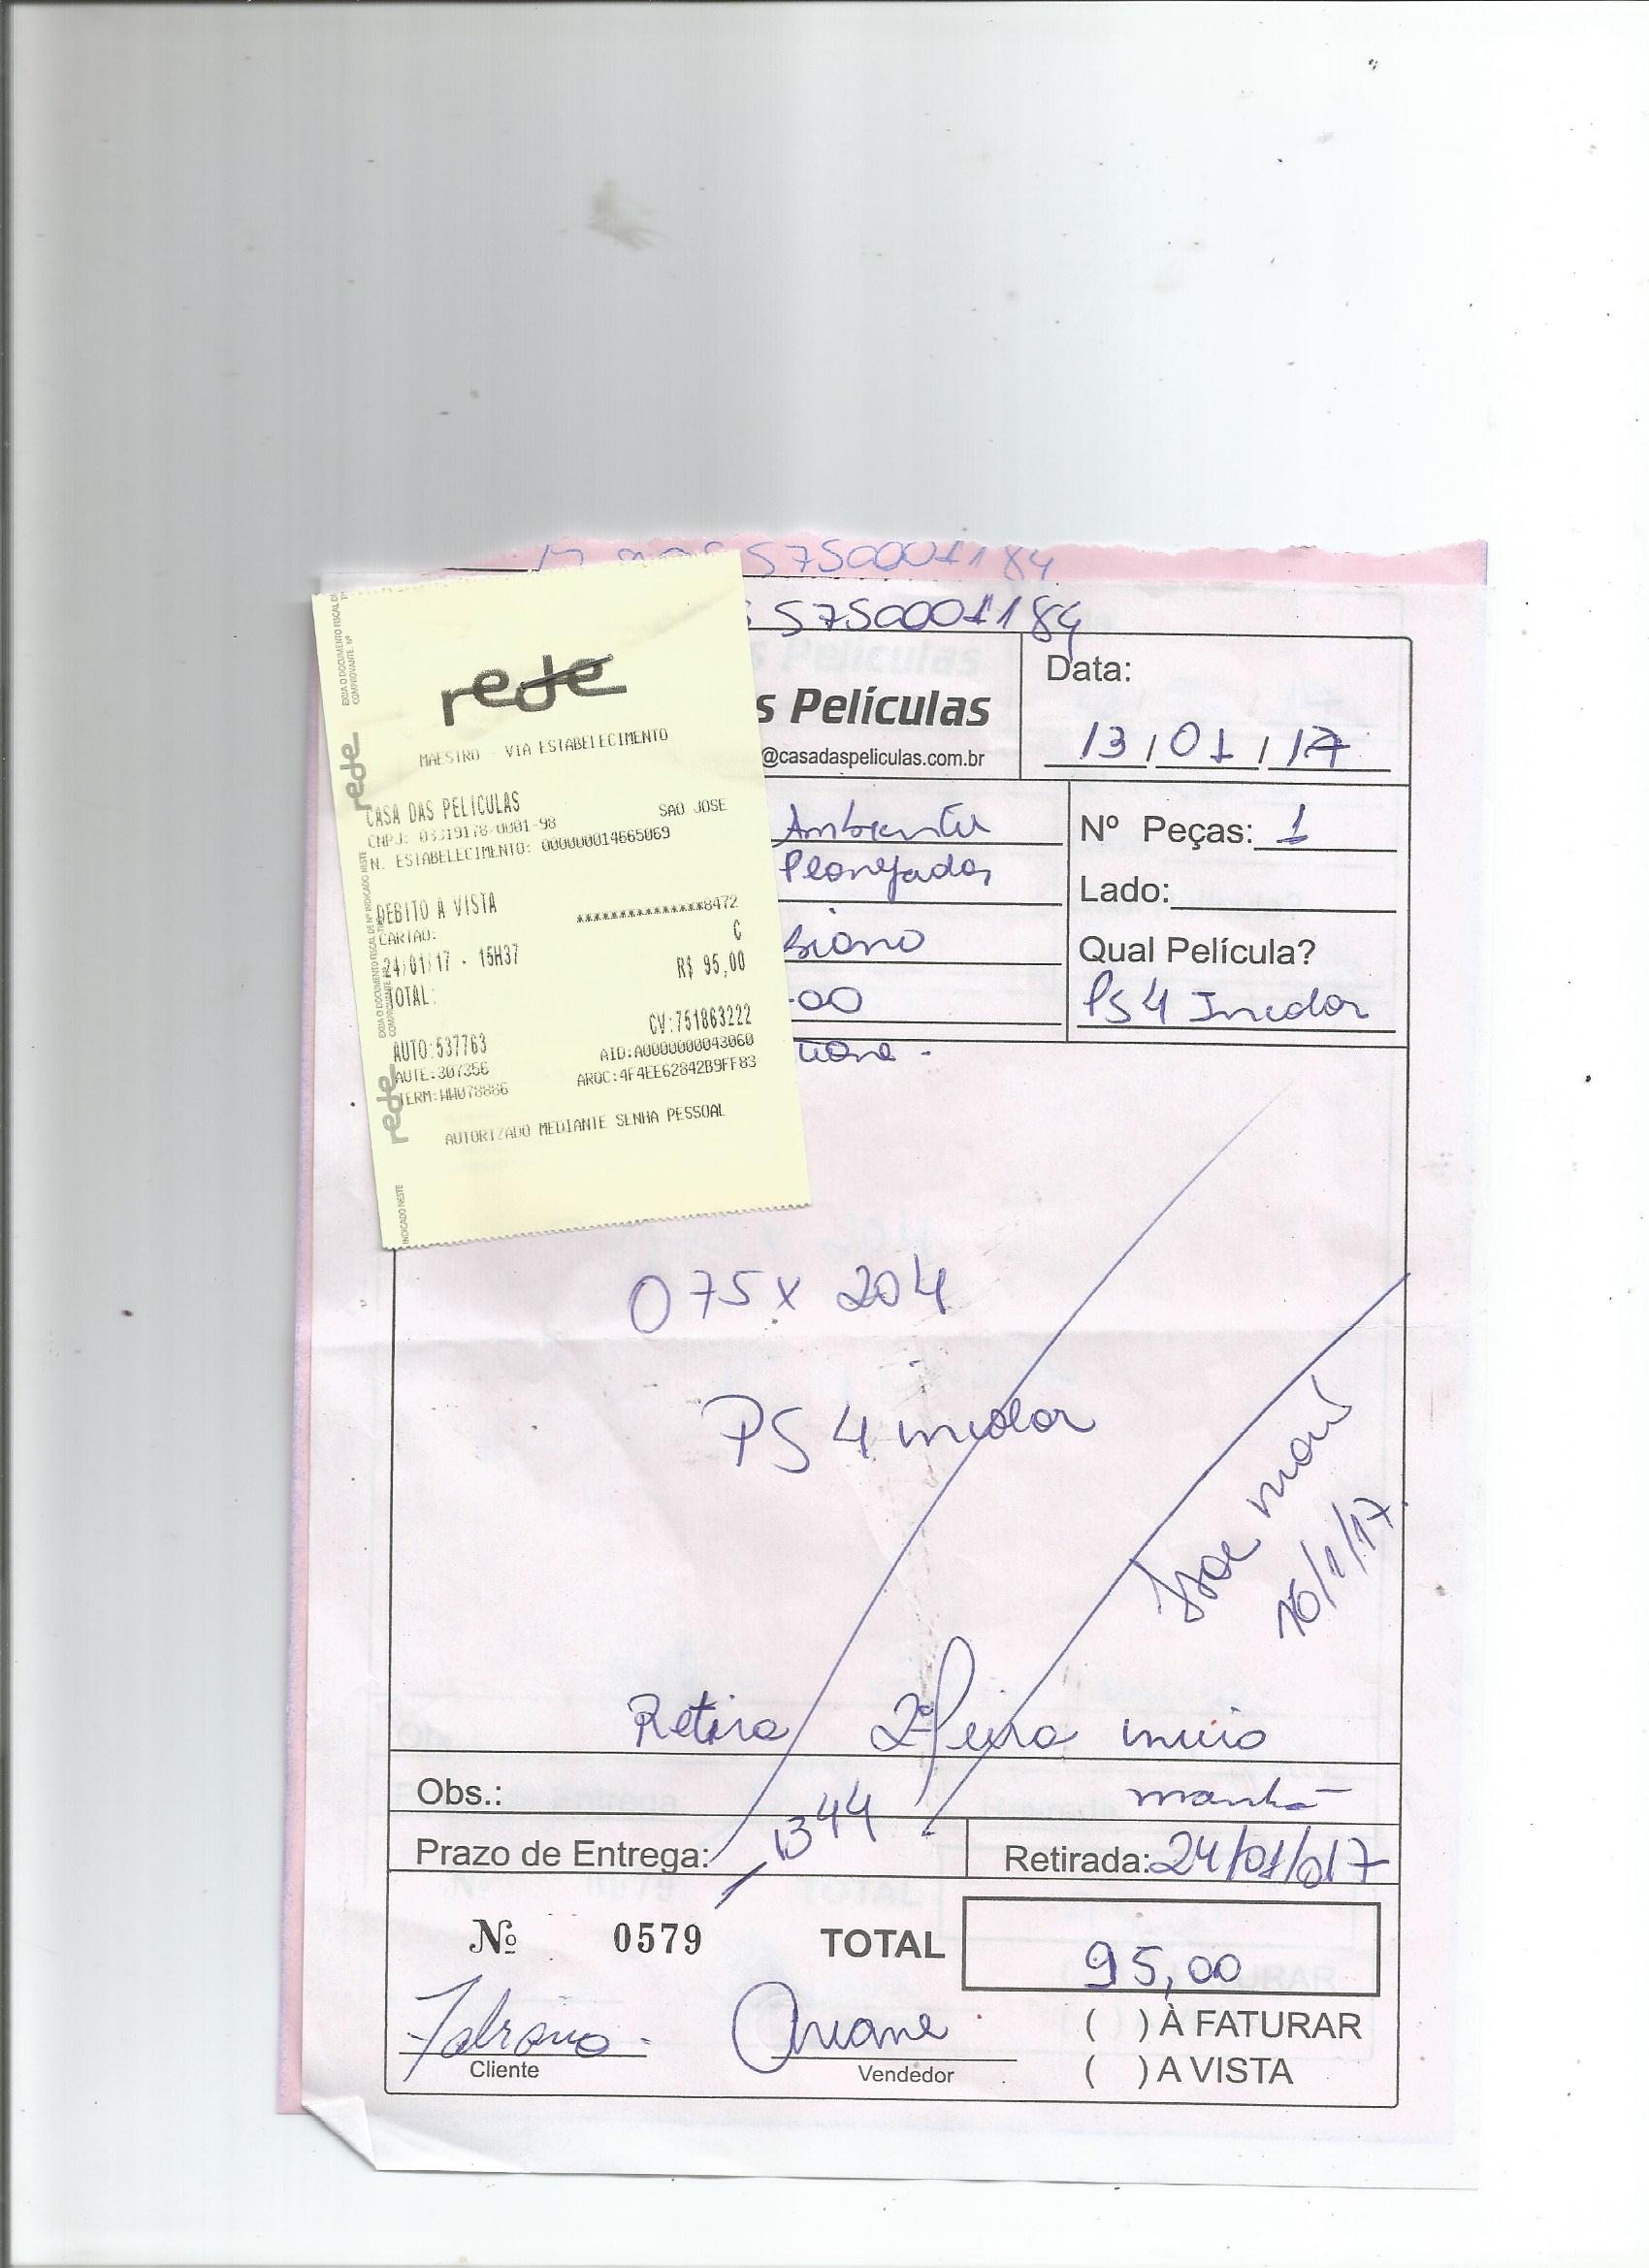 5750001184
5750001184
s Películas
@casadaspeliculas.com.br
Data:
13/01/17
Ambiente
Planejados
biano
-00
Nº Peças: 1
Lado:
Qual Película?
PS4 Incolor
rede
MAESTRO - VIA ESTABELECIMENTO
CASA DAS PELICULAS
SAO JOSE
CNPJ: 03319178/0001-98
N. ESTABELECIMENTO: 000000014665069
DEBITO A VISTA
CARTAO: ***************8472
24/01/17 - 15H37 C
TOTAL: R$ 95,00
CV:751863222
AUTO:537763
AID:A0000000043060
AUTE:307356
ARQC:4F4EE62842B9FF83
TERM:WW078886
AUTORIZADO MEDIANTE SENHA PESSOAL
rede
rede
INDICADO NESTE
075x 204
PS 4 incolor
16/1/17
Retira 2ª feira inicio
Obs.: manhã
Prazo de Entrega: 1344
Retirada: 24/01/017
Nº 0579
TOTAL 95,00
Fabiano
Cliente
Ariane
Vendedor
( ) À FATURAR
( ) A VISTA